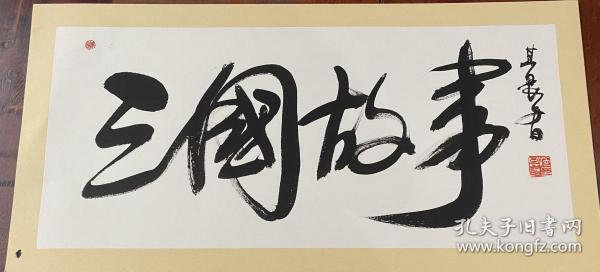 三國故事
其最書
孔夫子旧书网
www.kongfz.com